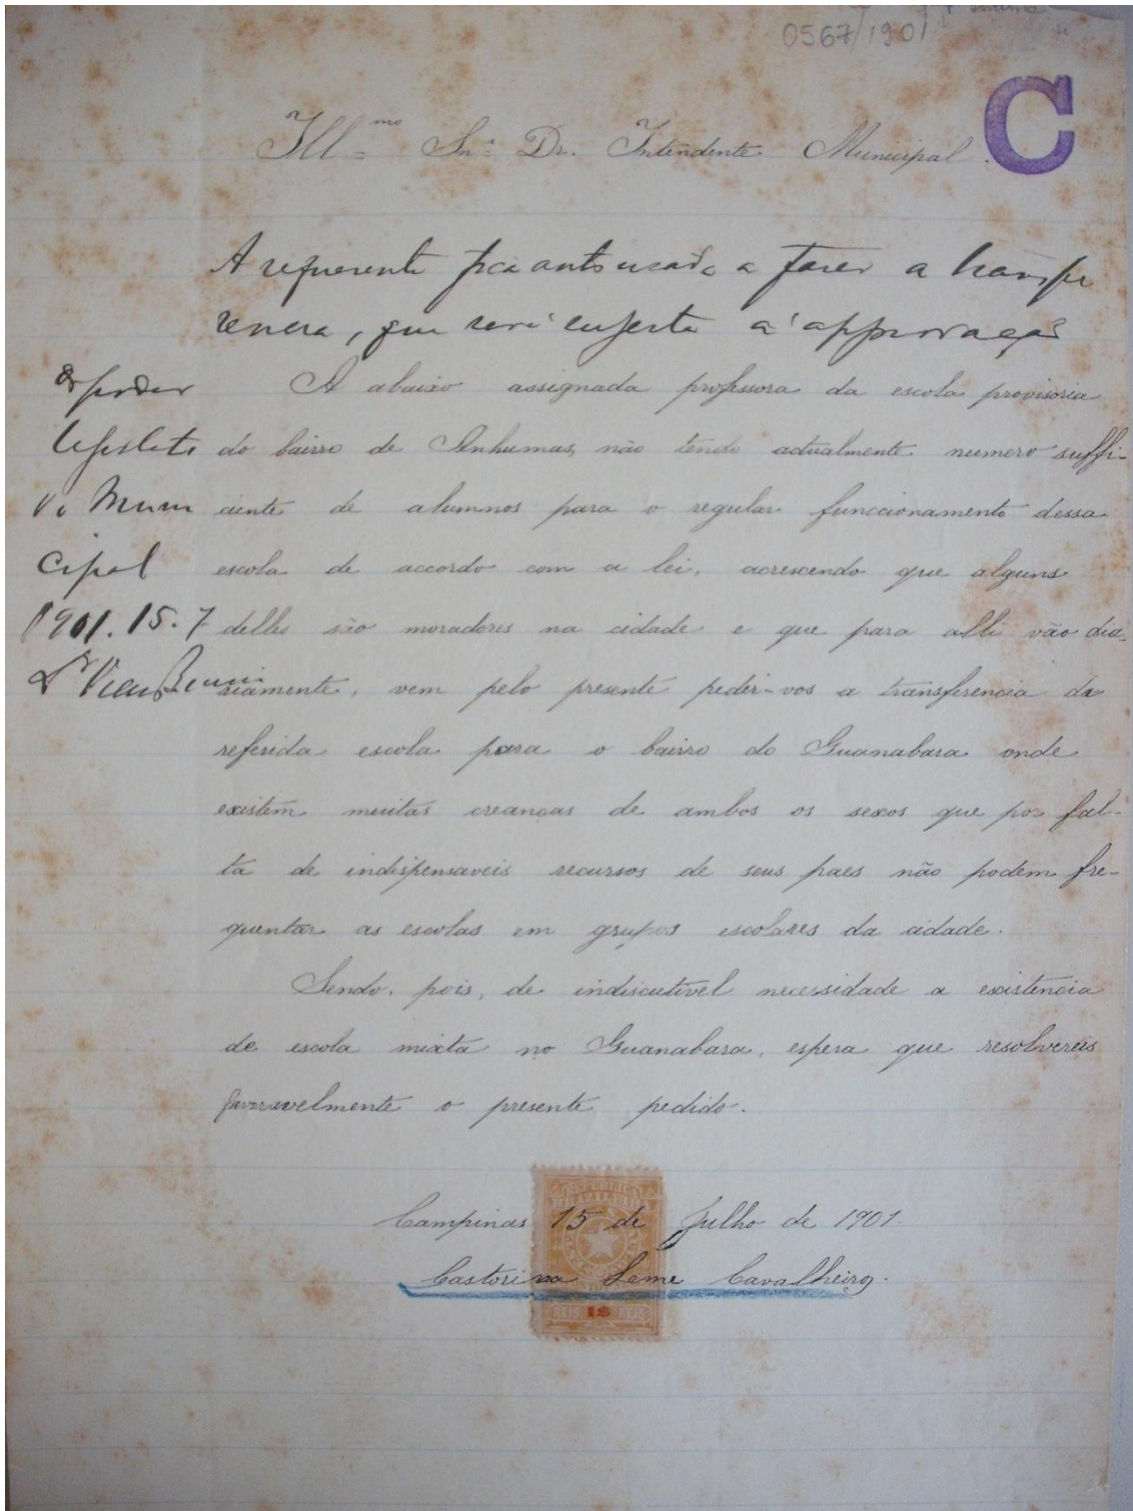 0567/1901
C
Illmo Snr. Dr. Intendente Municipal.
A requerente fica autorisada a fazer a transfe
rencia, que será sujeita á approvação
do poder
Legislati
vo Muni
cipal
1901.15.7
A abaixo assignada professora da escola provisoria
do bairro de Anhumas, não tendo actualmente numero suffi-
ciente de alumnos para o regular funccionamento dessa
escola de accordo com a lei, acrescendo que alguns
delles são moradores na cidade e que para alli vão dia-
riamente, vem pelo presente pedir-vos a transferencia da
referida escola para o bairro do Guanabara onde
existem muitas creanças de ambos os sexos que por fal-
ta de indispensaveis recursos de seus paes não podem fre-
quentar as escolas em grupos escolares da cidade.
Sendo, pois, de indiscutivel necessidade a existencia
de escola mixta no Guanabara, espera que resolvereis
favoravelmente o presente pedido.
Campinas 15 de Julho de 1901.
Castorina Leme Cavalheiro.
REIS 1$ REIS